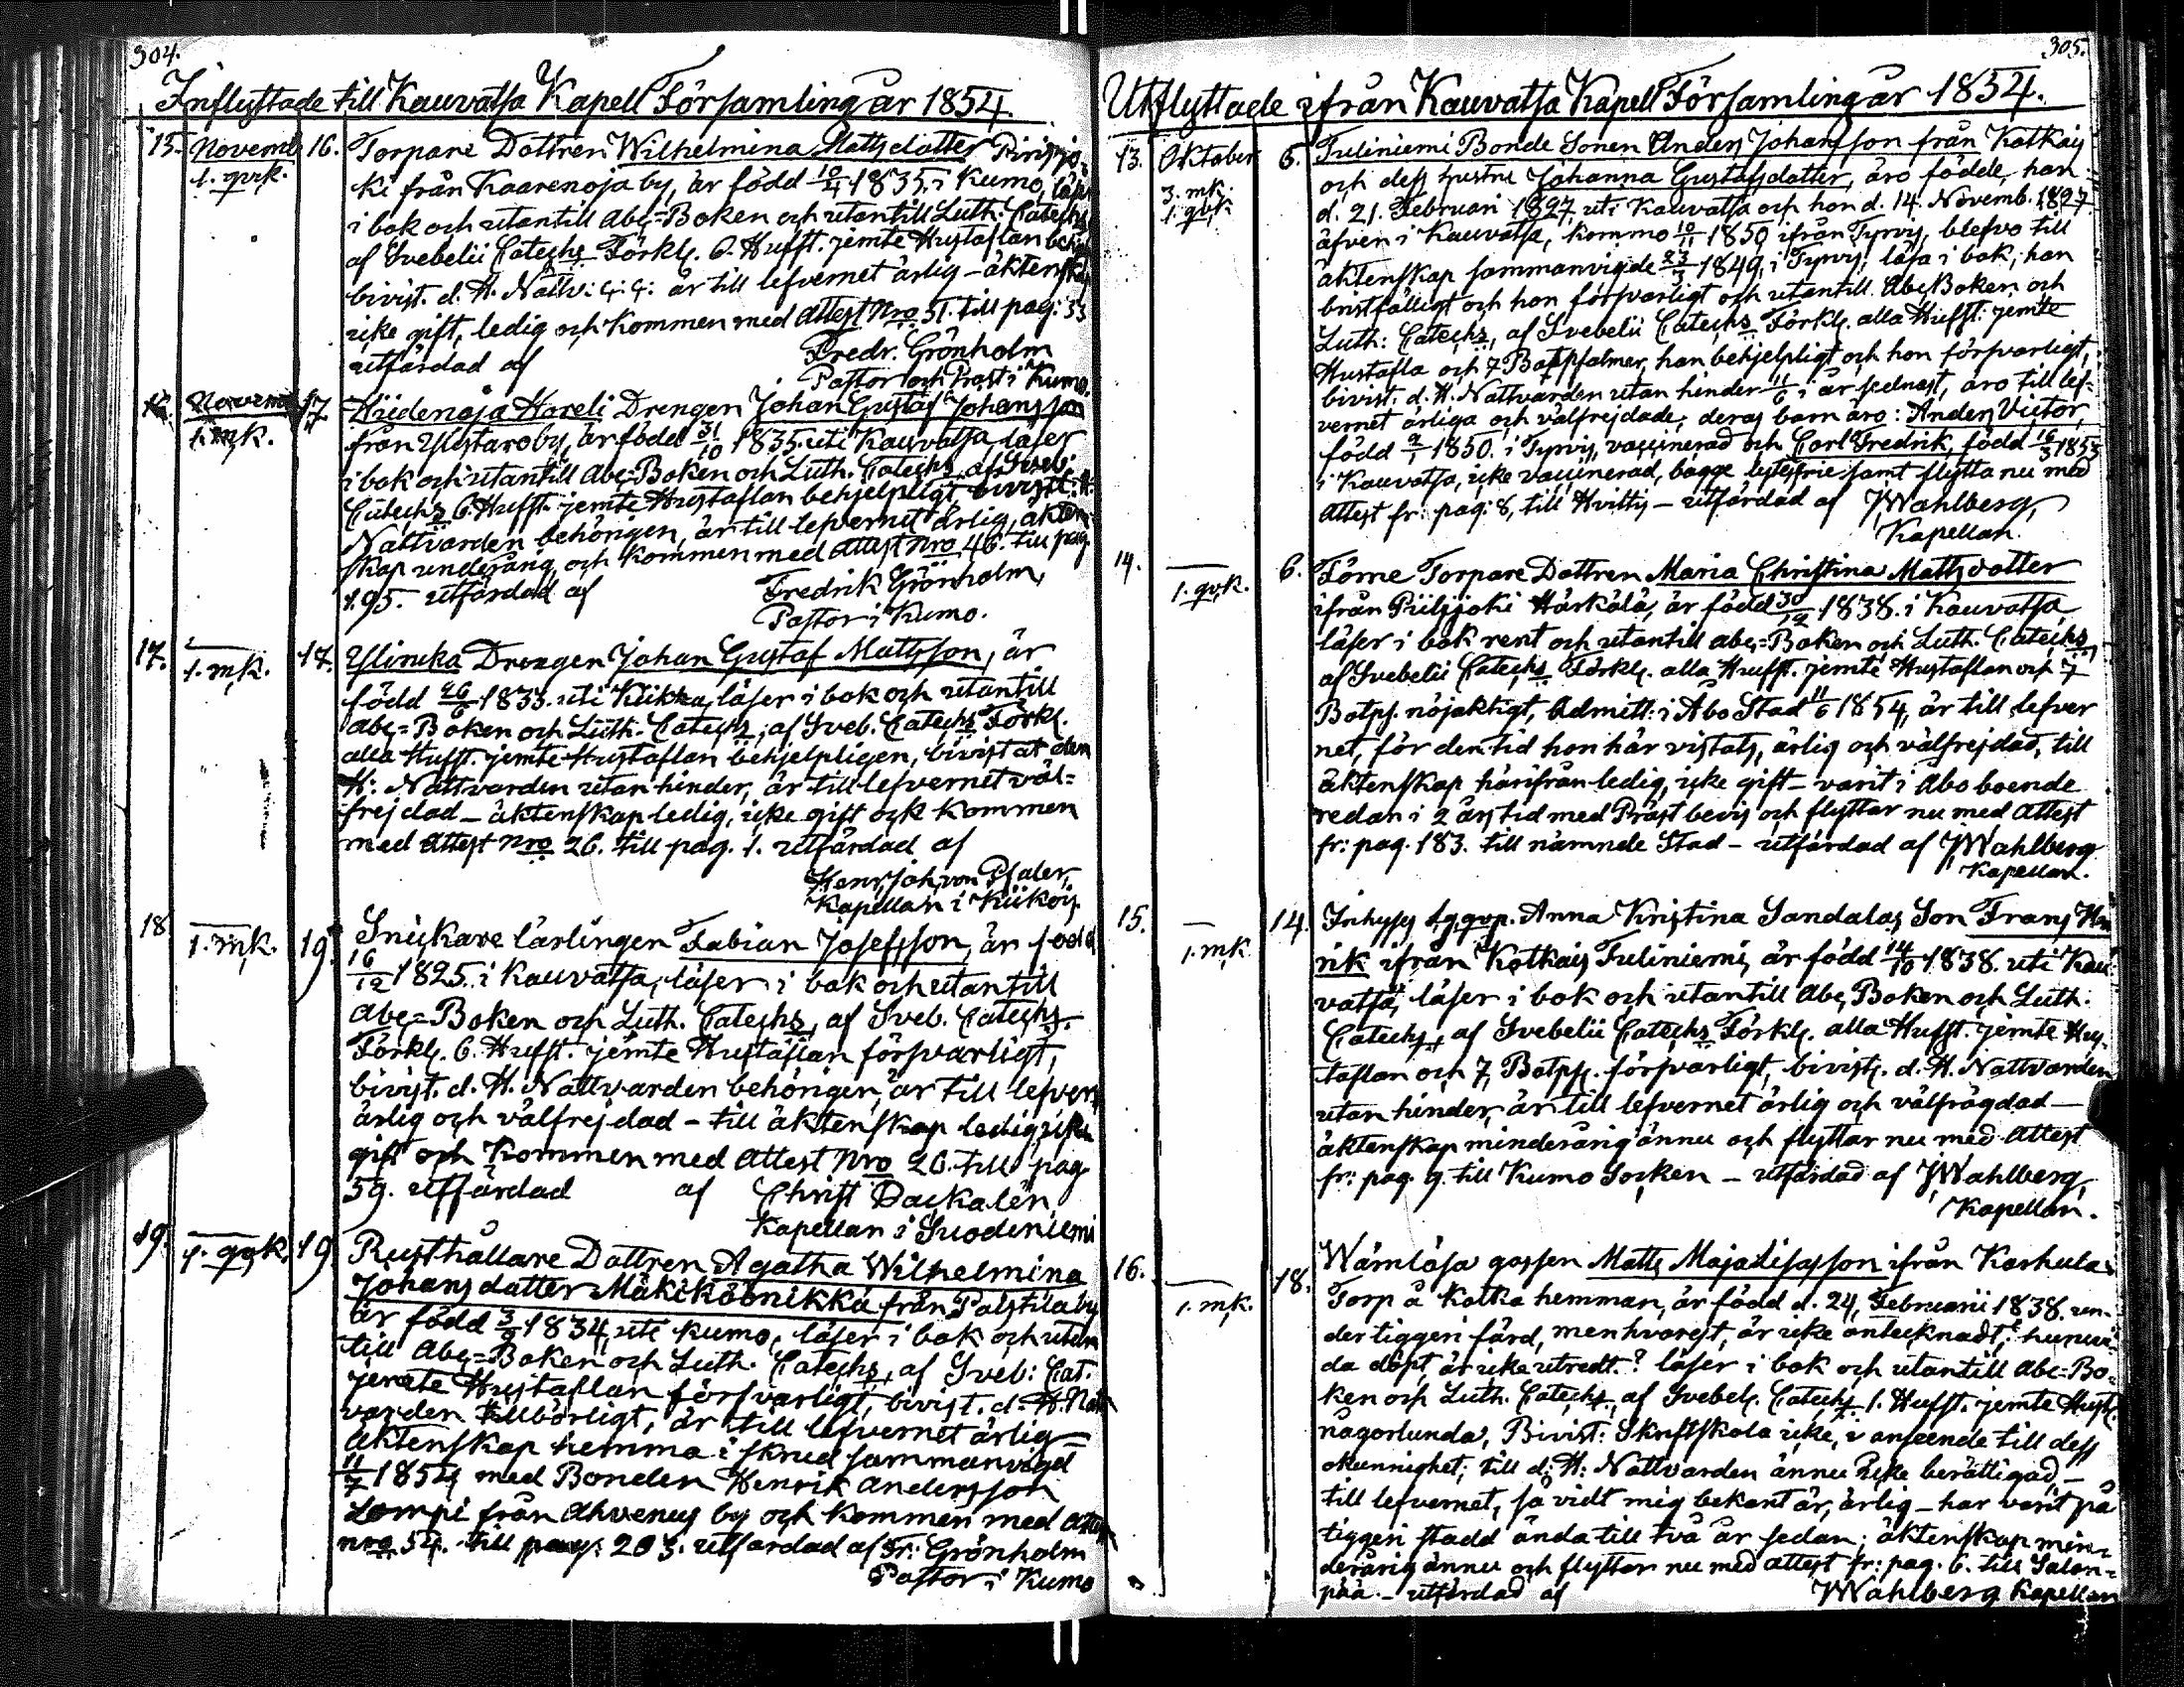 304.
Inflyttade till Kauvatsa Kapell Församling år 1854.
15. Novemb. 16. Torpare Dottren Wilhelmina Mattsdotter Piispjo-
1. qvk. ki från Kaarenoja by, är född 10/4 1835. i Kumo, läser
i bok och utantill Abc=Boken och utantill Luth. Catechs
af Svebelii Catechs Förklg. 6. Hufst. jemte Hustaflan
bivist. d. H. Nattv: är till lefvernet ärlig – äktenskap
icke gift, ledig och Kommen med Attest Nro 51. till pag: 33
utfärdad af Fredr. Grönholm
Pastor och Prost i Kumo.
16. Novemb 17 Hiidenoja Hareli Drengen Johan Gustaf Johansson
1. mk. från Ylistaroby, är född 31/10 1835. uti Kauvatsa, läser
i bok och utantill Abc=Boken och Luth. Catechs af Sveb:
Catechs 6. Hufst. jemte Hustaflan behjelpligt, bivist. d. H.
Nattvarden behörigen, är till lefvernet ärlig, äkten-
skap underårig och Kommen med Attest Nro 46. till pag.
195. utfärdad af Fredrik Grönholm,
Pastor i Kumo.
17. 1. mk. 17. Ylineka Drengen Johan Gustaf Mattsson, är
född 26/6 1833. uti Kiikka, läser i bok och utantill
Abc=Boken och Luth. Catechs, af Sveb. Catechs Förkl.
alla Hufst. jemte Hustaflan behjelpligen, bivistat den
H. Nattvarden utan hinder, är till lefvernet väl=
frejdad – äktenskap ledig, icke gift och Kommen
med Attest Nro 26. till pag. 1. utfärdad af
Henr. Joh. von Pfaler,
Kapellan i Kiikois.
18 1. mk. 19. Snickare lärlingen Fabian Josefsson, är född
16/12 1825. i Kauvatsa, läser i bok och utantill
Abc=Boken och Luth. Catechs, af Sveb. Catechs.
Förklg. 6. Hufst. jemte Hustaflan försvarligt,
bivist. d. H. Nattvarden behörigen, är till lefvern
ärlig och välfrejdad – till äktenskap ledig, icke
gift och Kommen med Attest Nro 20. till pag
59. utfärdad af Christ Backalén,
Kapellan i Suodeniemi
19. 1. qvk. 19 Rusthållare Dottren Agatha Wilhelmina
Johansdotter Mäkiköönikkä från Palstila by
är född 3/9 1834, uti Kumo, läser i bok och utan
till Abc=Boken och Luth. Catechs, af Sveb: Cat.
jemte Hustaflan försvarligt, bivist. d. H. Natt
varden tillbörligt, är till lefvernet ärlig –
äktenskap hemma i skrud sammanvigd
11/7 1854, med Bonden Henrik Andersson
Lempi från Ahvenus by och Kommen med Attest
nro 54. till pag: 203. utfärdad af Fr: Grönholm
Pastor i Kumo
305.
Utflyttade ifrån Kauvatsa Kapell Församling år 1854.
13. Oktober 6. Tuliniemi Bonde Sonen Anders Johansson från Katkais
3. mk. och dess hustru Johanna Gustafsdotter, äro födde, han
1. qvk. d. 21. Februari 1827 uti Kauvatsa och hon d. 14. Novemb. 1827
äfven i Kauvatsa, kommo 10/11 1850 ifrån Tyrvis, blefvo till
äktenskap sammanvigde 1849, i Tyrvis, läsa i bok, han
bristfälligt och hon försvarligt och utantill Abc Boken och
Luth: Catechs, af Svebelii Catechs Förklg. alla Hufst: jemte
Hustafla och 7 Botpsalmer, han behjelpligt och hon försvarligt,
bivist. d. H. Nattvarden utan hinder 11/6 i år sednast, äro till lef-
vernet ärliga och välfrejdade, deras barn äro: Anders Victor,
född 1850. i Tyrvis, vaccinerad och Carl Fredrik, född 16/3 1853
i Kauvatsa, icke vaccinerad, bägge lytesfrie samt flytta nu med
Attest fr: pag: 8, till Hvittis – utfärdad af JWahlberg,
Kapellan.
14. 1. qvk. 6. Förne Torpare Dottren Maria Christina Mattsdotter
ifrån Piilijoki Härkälä, är född 30/12 1838. i Kauvatsa,
läser i bok rent och utantill Abc=Boken och Luth. Catechs
af Svebelii Catechs Förklg. alla Hufst. jemte Hustaflan och 7
Botps. nöjaktigt, Admitt: i Åbo Stad 11/6 1854, är till lefver
net, för den tid hon här vistats, ärlig och välfrejdad, till
äktenskap härifrån ledig, icke gift – varit i Åbo boende
redan i 2 års tid med Präst bevis och flyttar nu med Attest
fr: pag. 183. till nämnde Stad – utfärdad af JWahlberg
Kapellan.
15. 1. mk. 14. Inhyses Anna Kristina Sandalas Son Frans Hen
rik ifrån Katkais Tuliniemi, är född 14/10 1838. uti Kau
vatsa, läser i bok och utantill Abc Boken och Luth.
Catechs, af Svebelii Catechs Förklg. alla Hufst. jemte Hus-
taflan och 7 Botps. försvarligt, bivistg. d. H. Nattvarden
utan hinder, är till lefvernet ärlig och välfrägdad –
äktenskap minderårig ännu och flyttar nu med Attest
fr: pag. 9. till Kumo Socken – utfärdad af JWahlberg,
Kapellan.
16. 1. mk. 18. Wärnlösa gossen Matts Majalisasson ifrån Karhulas
Torp å Katka hemman, är född d. 24, Februarii 1838. un-
der tiggeri färd, men hvarest, är icke antecknadt, huruvi-
da döpt, är icke utredt.? läser i bok och utantill Abc=Bo-
ken och Luth. Catechs, af Svebel. Catechs 1. Hufst. jemte Hustf.
någorlunda, Bivist: Skriftskola icke, i anseende till dess
okunnighet; till d: H: Nattvarden ännu icke berättigad, –
till lefvernet, så vidt mig bekant är, ärlig – har varit på
tiggeri stadd ända till två år sedan; äktenskap min-
derårig ännu och flyttar nu med attest fr: pag. 6. till Salon=
pää – utfärdad af JWahlberg Kapellan